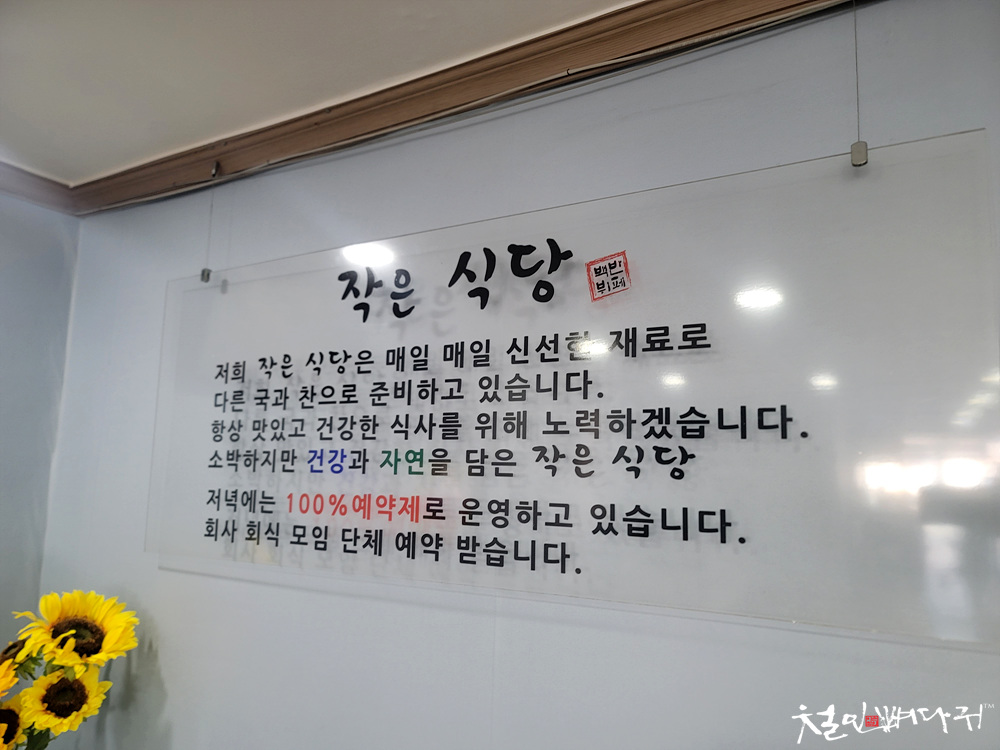 작은 식당
백반
뷔페
저희 작은 식당은 매일 매일 신선한 재료로
다른 국과 찬으로 준비하고 있습니다.
항상 맛있고 건강한 식사를 위해 노력하겠습니다.
소박하지만 건강과 자연을 담은 작은 식당
저녁에는 100%예약제로 운영하고 있습니다.
회사 회식 모임 단체 예약 받습니다.
철인뼈다귀™